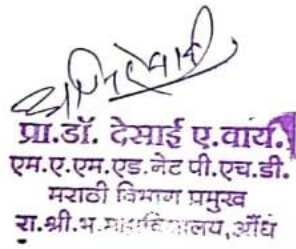 प्रा.डॉ. देसाई ए.वाय.
एम.ए.एम.एड.नेट पी.एच.डी.
मराठी विभाग प्रमुख
रा.श्री.भ.महाविद्यालय,औंध